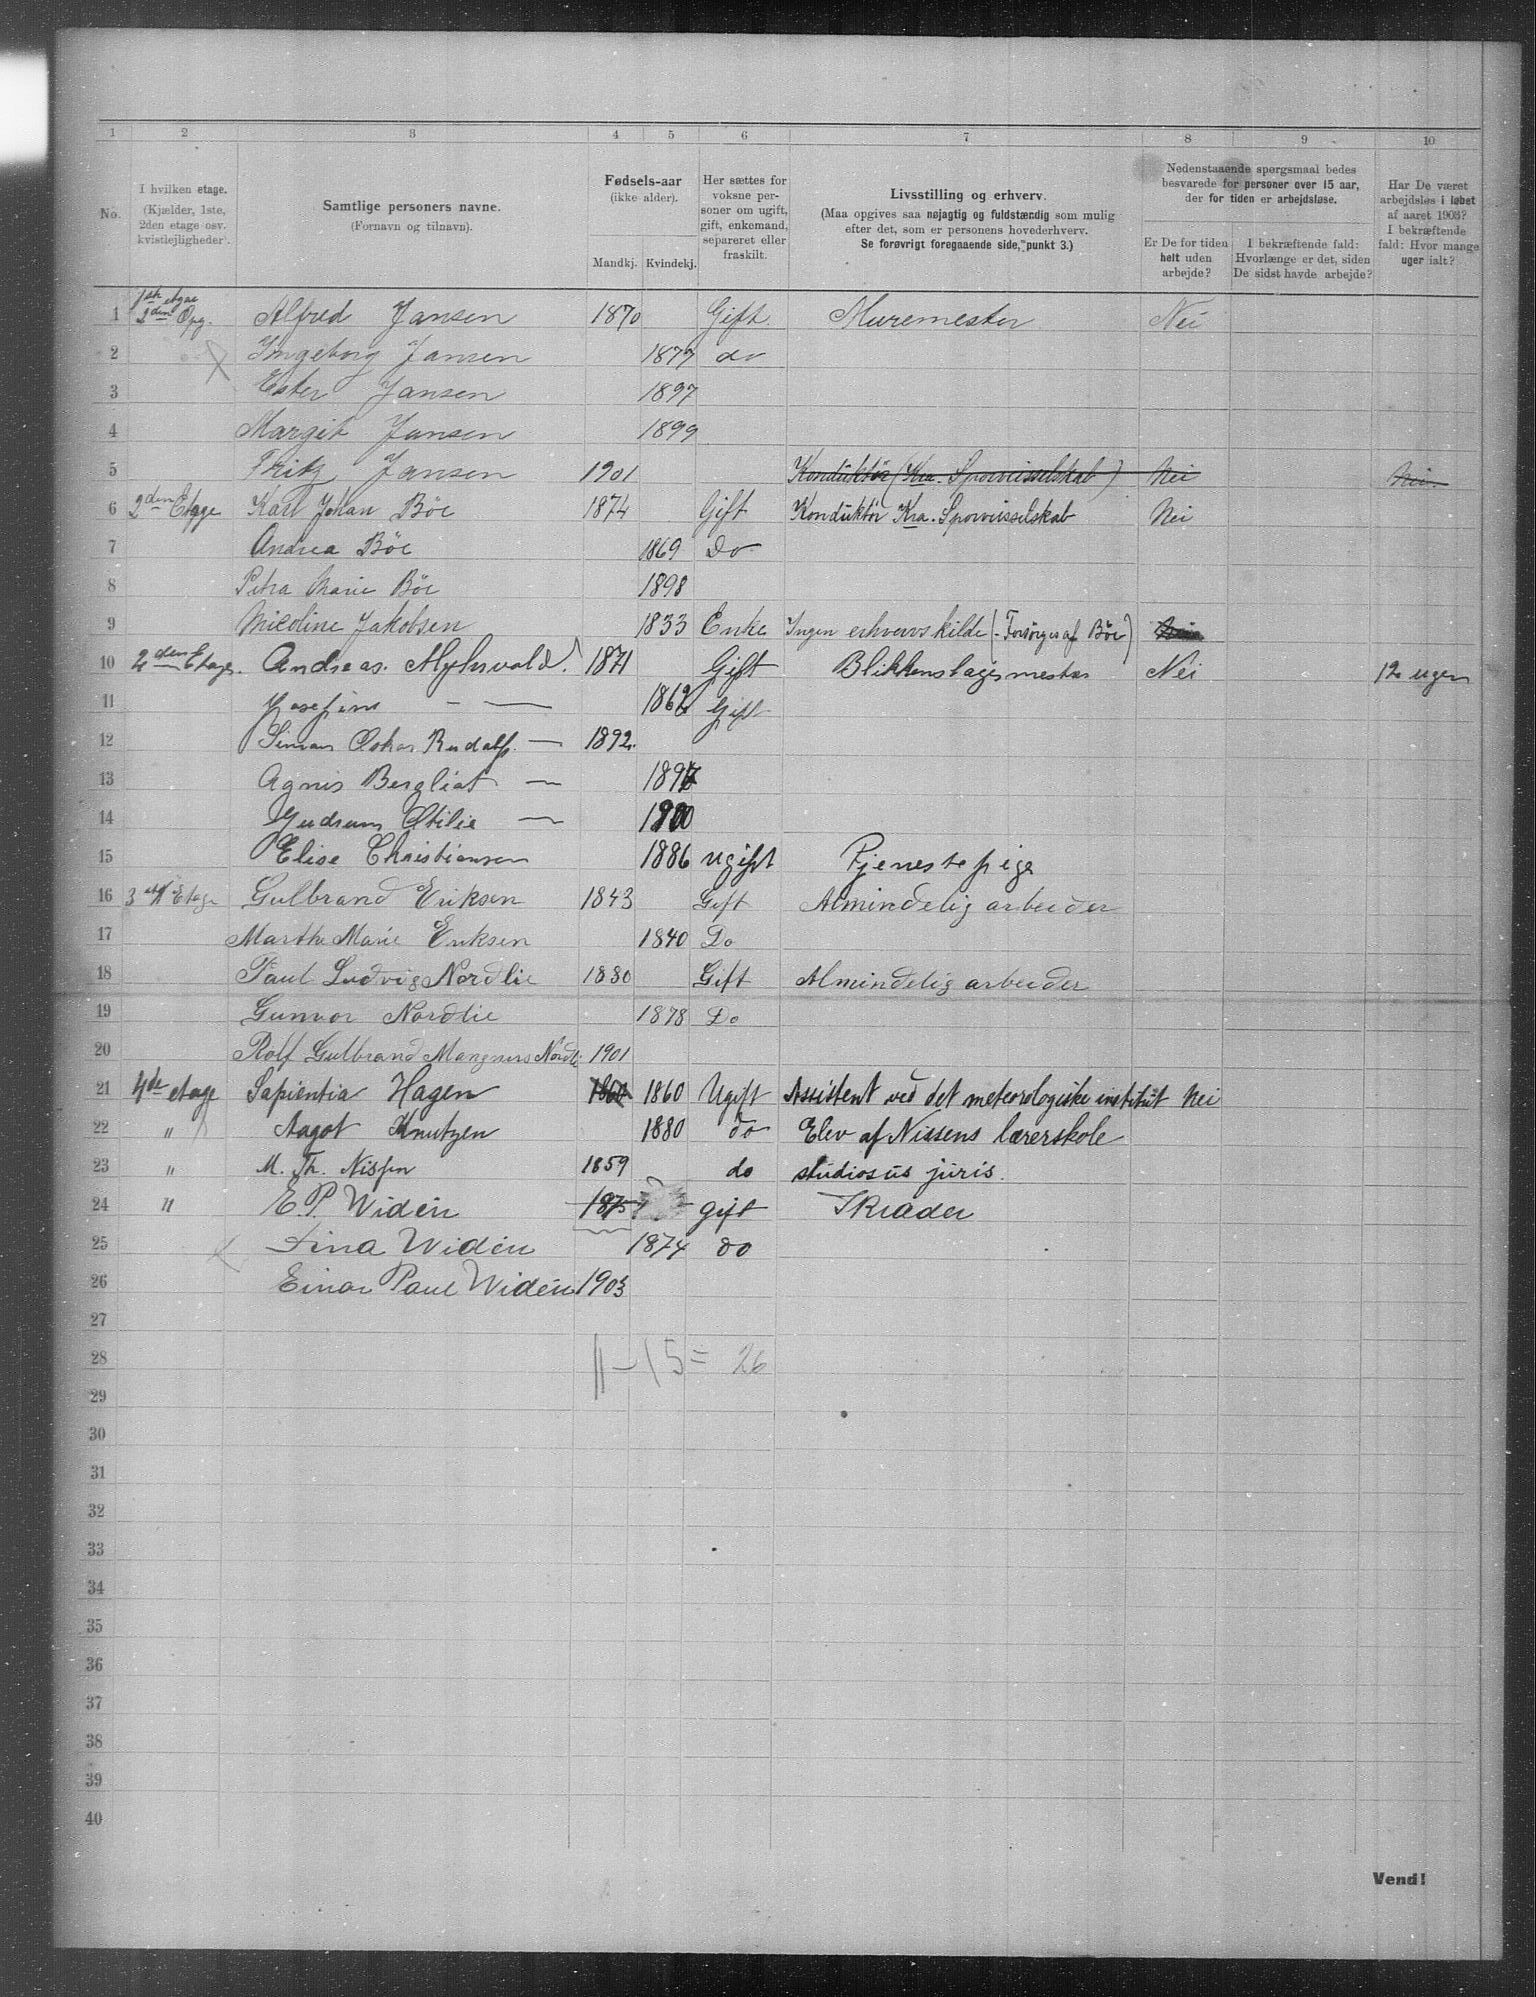 1 2 3 4 5 6 7 8 9 10
No.
I hvilken etage. (Kjælder, 1ste, 2den etage osv. kvistleiligheder).
Samtlige personers navne.
(Fornavn og tilnavn).
Fødsels-aar
(ikke alder).
Mandkj. Kvindekj.
Her sættes for voksne personer om ugift, gift, enkemand, separeret eller fraskilt.
Livsstilling og erhverv.
(Maa opgives saa nøjagtig og fuldstændig som mulig
efter det, som er personens hovederhverv.
Se forøvrigt foregaaende side, punkt 3.)
Nedenstaaende spørgsmaal bedes
besvarede for personer over 15 aar,
der for tiden er arbejdsløse.
Er De for tiden helt uden arbejde?
I bekræftende fald: Hvorlænge er det, siden De sidst havde arbejde?
Har De været arbejdsløs i løbet af aaret 1903? I bekræftende fald: Hvor mange uger ialt?
1 1ste etage 2den Opg. Alfred Jansen 1870 Gift Muremester Nei
2 Ingeborg Jansen 1877 do
3 Ester Jansen 1897
4 Margit Jansen 1899
5 Fritz Jansen 1901 Konduktør (Kra. Sporveisselskab) Nei Nei.
6 2den Etage Karl Johan Böe 1874 Gift Konduktör Kra. Sporveisselskab Nei
7 Andrea Böe 1869 Do
8 Petra Marie Böe 1898
9 Nicoline Jakobsen 1833 Enke Ingen erhvervskilde (Forsörges af Böe)
10 2den Etage. Andreas. 1871 Gift Blikkenslagermester Nei 12 uger
11 Josefine — — 1862 Gift
12 Simon Oskar Rudolf. — 1892.
13 Agnis Bergliot — 1897
14 Gudrun Otilie — 1900
15 Elise Christiansen 1886 ugift Tjenestepige
16 3die Etage Gulbrand Eriksen 1843 Gift Almindelig arbeider
17 Marthe Marie Eriksen 1840 Do
18 Paul Ludvig Nordlie 1880 Gift Almindelig arbeider
19 Gunvor Nordlie 1878 Do
20 Rolf Gulbrand Mangnus Nordli 1901
21 4de etage Sapientia Hagen 1860 1860 Ugift Assistent ved det meteorologiske institut Nei
22 " Aagot Knutzen 1880 do Elev af Nissens lærerskole
23 " M. Th. Nissen 1859 do studiosus juris.
24 " E. P. Widén 1875 gift Skræder
25 Lina Widén 1874 do
26 Einar Paul Widén 1903
27
28 11-15=26
29
30
31
32
33
34
35
36
37
38
39
40
Vend!